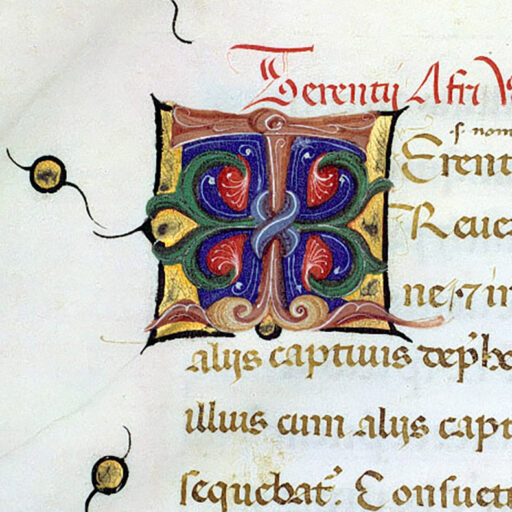 Terentij Afri
s. nom
TErent
Reuer
ne. 7 in
alijs captiuis dep̃he
illius cum alijs capt
sequebat᷑. Consuet